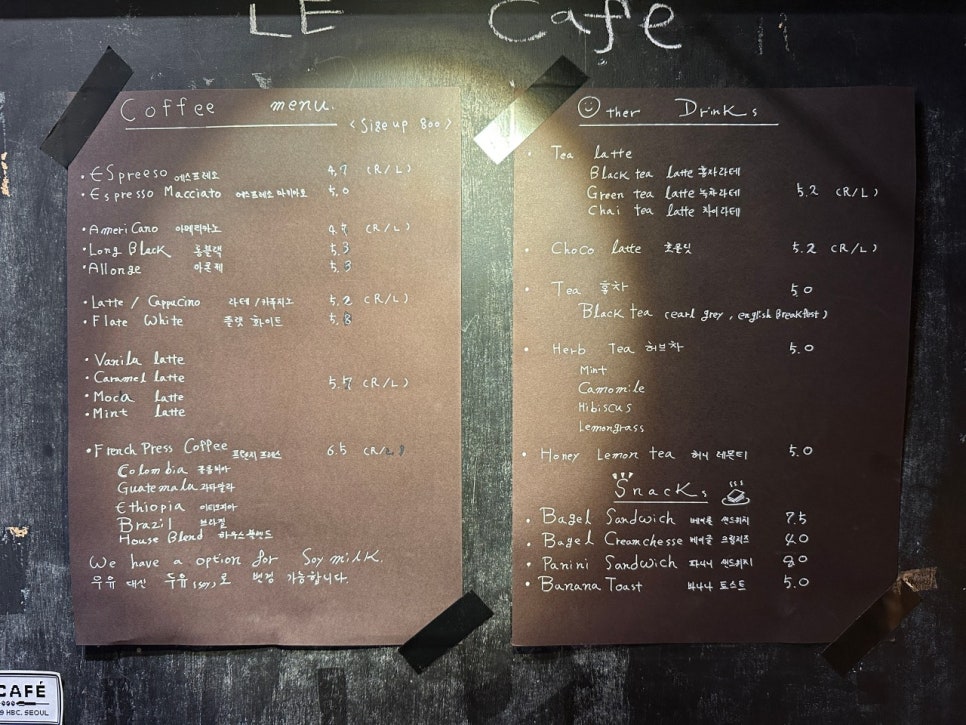 LE Cafe
Coffee menu.
<Size up 800>
• ESpreeso 에스프레소 4.7 (R/L)
• Espresso Macciato 에스프레소 마키아또 5.0
• AmeriCano 아메리카노 4.7 (R/L)
• Long Black 롱블랙 5.3
• Allonge 아롱제 5.3
• Latte / Cappucino 라떼/카푸치노 5.2 (R/L)
• Flate White 플랫 화이트 5.8
• Vanila latte
• Caramel latte
5.7 (R/L)
• Moca latte
• Mint latte
• French Press Coffee 프렌치 프레스 6.5 (R/L)
Colombia 콜롬비아
Guatemala 과테말라
Ethiopia 이디오피아
Brazil 브라질
House Blend 하우스블랜드
We have a option for Soy milk.
우유 대신 두유(soy)로 변경 가능합니다.
Other Drinks
• Tea latte
Black tea latte 홍차라떼
Green tea latte 녹차라떼 5.2 (R/L)
Chai tea latte 차이라떼
• Choco latte 초콜릿 5.2 (R/L)
• Tea 홍차 5.0
Black tea (earl grey, english Breakfast)
• Herb Tea 허브차 5.0
Mint
Camomile
Hibiscus
Lemongrass
• Honey Lemon tea 허니 레몬티 5.0
Snacks
• Bagel Sandwich 베이글 샌드위치 7.5
• Bagel Creamchesse 베이글 크림치즈 4.0
• Panini Sandwich 파니니 샌드위치 8.0
• Banana Toast 바나나 토스트 5.0
CAFÉ
HBC. SEOUL